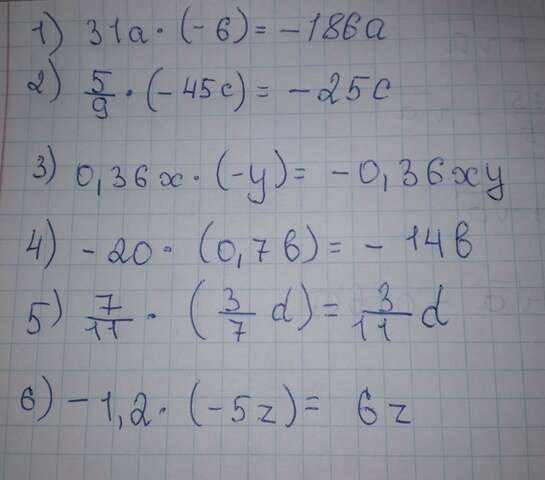 1) 31a · (-6) = -186a
2) 5/9 · (-45c) = -25c
3) 0,36x · (-y) = -0,36xy
4) -20 · (0,7в) = -14в
5) 7/11 · (3/7 d) = 3/11 d
6) -1,2 · (-5z) = 6z